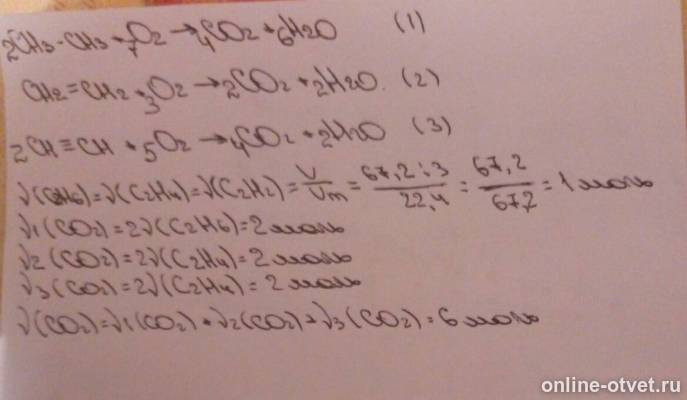 2CH3-CH3 + 7O2 → 4CO2 + 6H2O (1)
CH2=CH2 + 3O2 → 2CO2 + 2H2O. (2)
2CH≡CH + 5O2 → 4CO2 + 2H2O (3)
√(C2H6)=√(C2H4)=√(C2H2)= V/Vm = 67,2:3/22,4 = 67,2/67,2 = 1 моль
√1(CO2)=2√(C2H6)=2 моль
√2(CO2)=2√(C2H4)=2 моль
√3(CO2)=2√(C2H4)=2 моль
√(CO2)=√1(CO2)+√2(CO2)+√3(CO2)=6 моль
online-otvet.ru